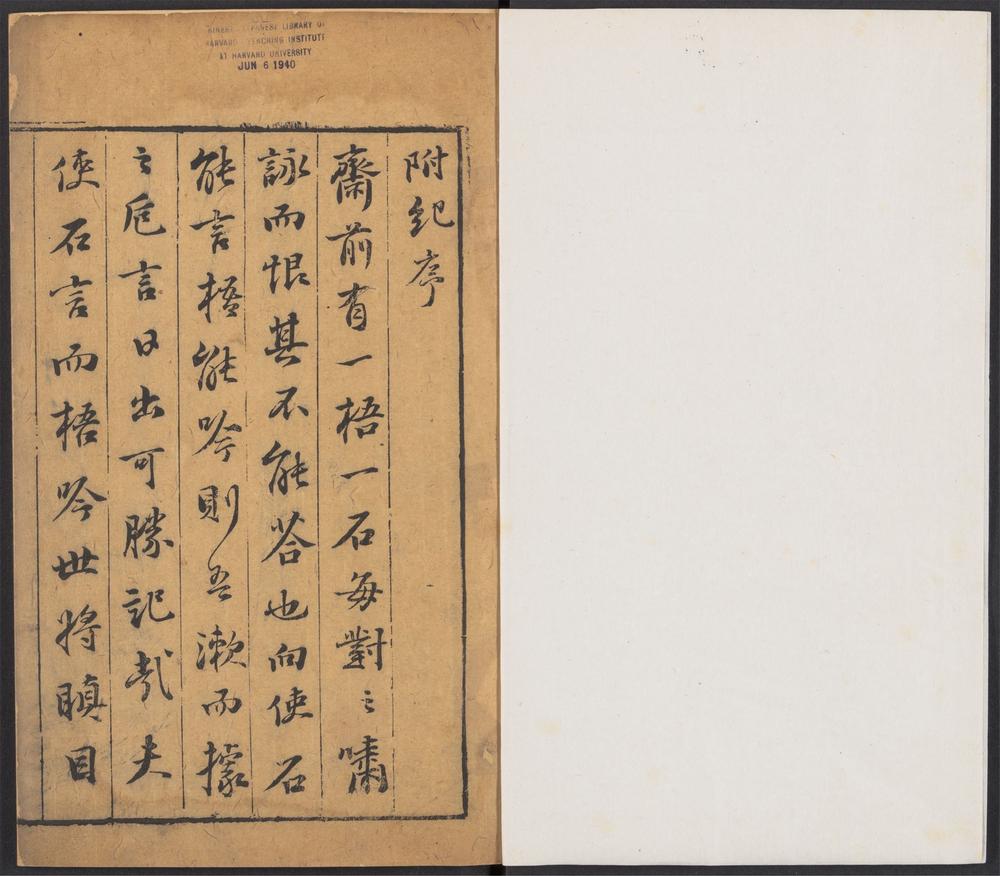 CHINESE-JAPANESE LIBRARY OF
HARVARD-YENCHING INSTITUTE
AT HARVARD UNIVERSITY
JUN 6 1940
附紀序
齋前有一梧一石每對之嘯
詠而恨其不能荅也向使石
能言梧能吟則吾漱而據
之巵言日出可勝記哉夫
使石言而梧吟世將瞋目